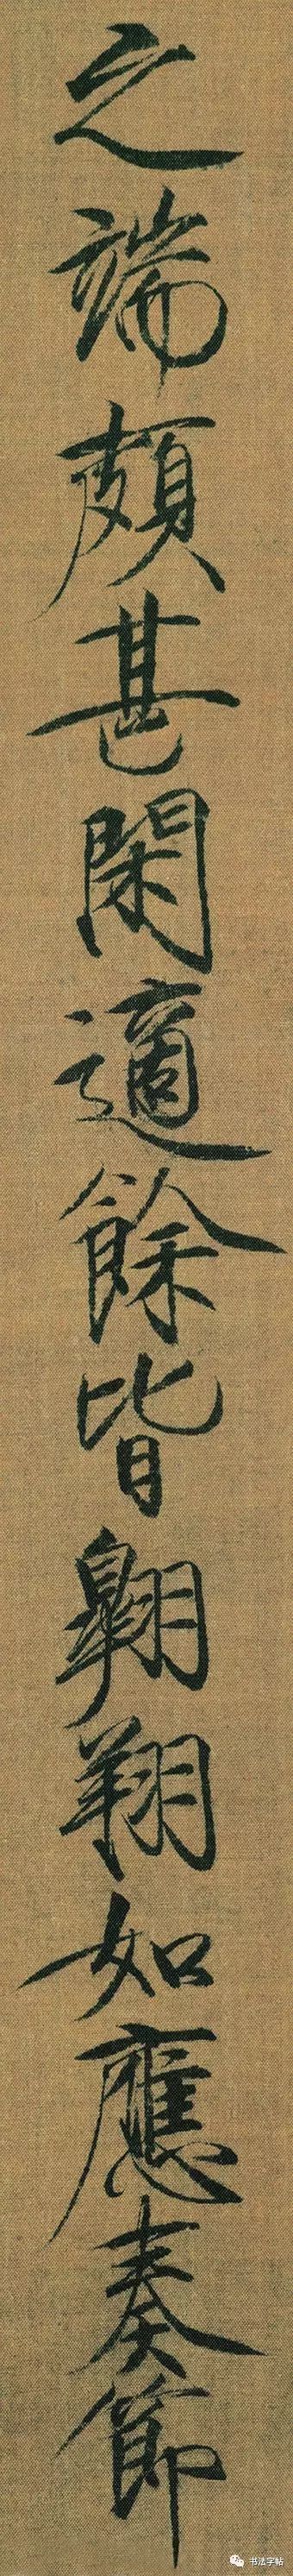 之端頗甚閑適餘皆翺翔如應奏節
书法字帖